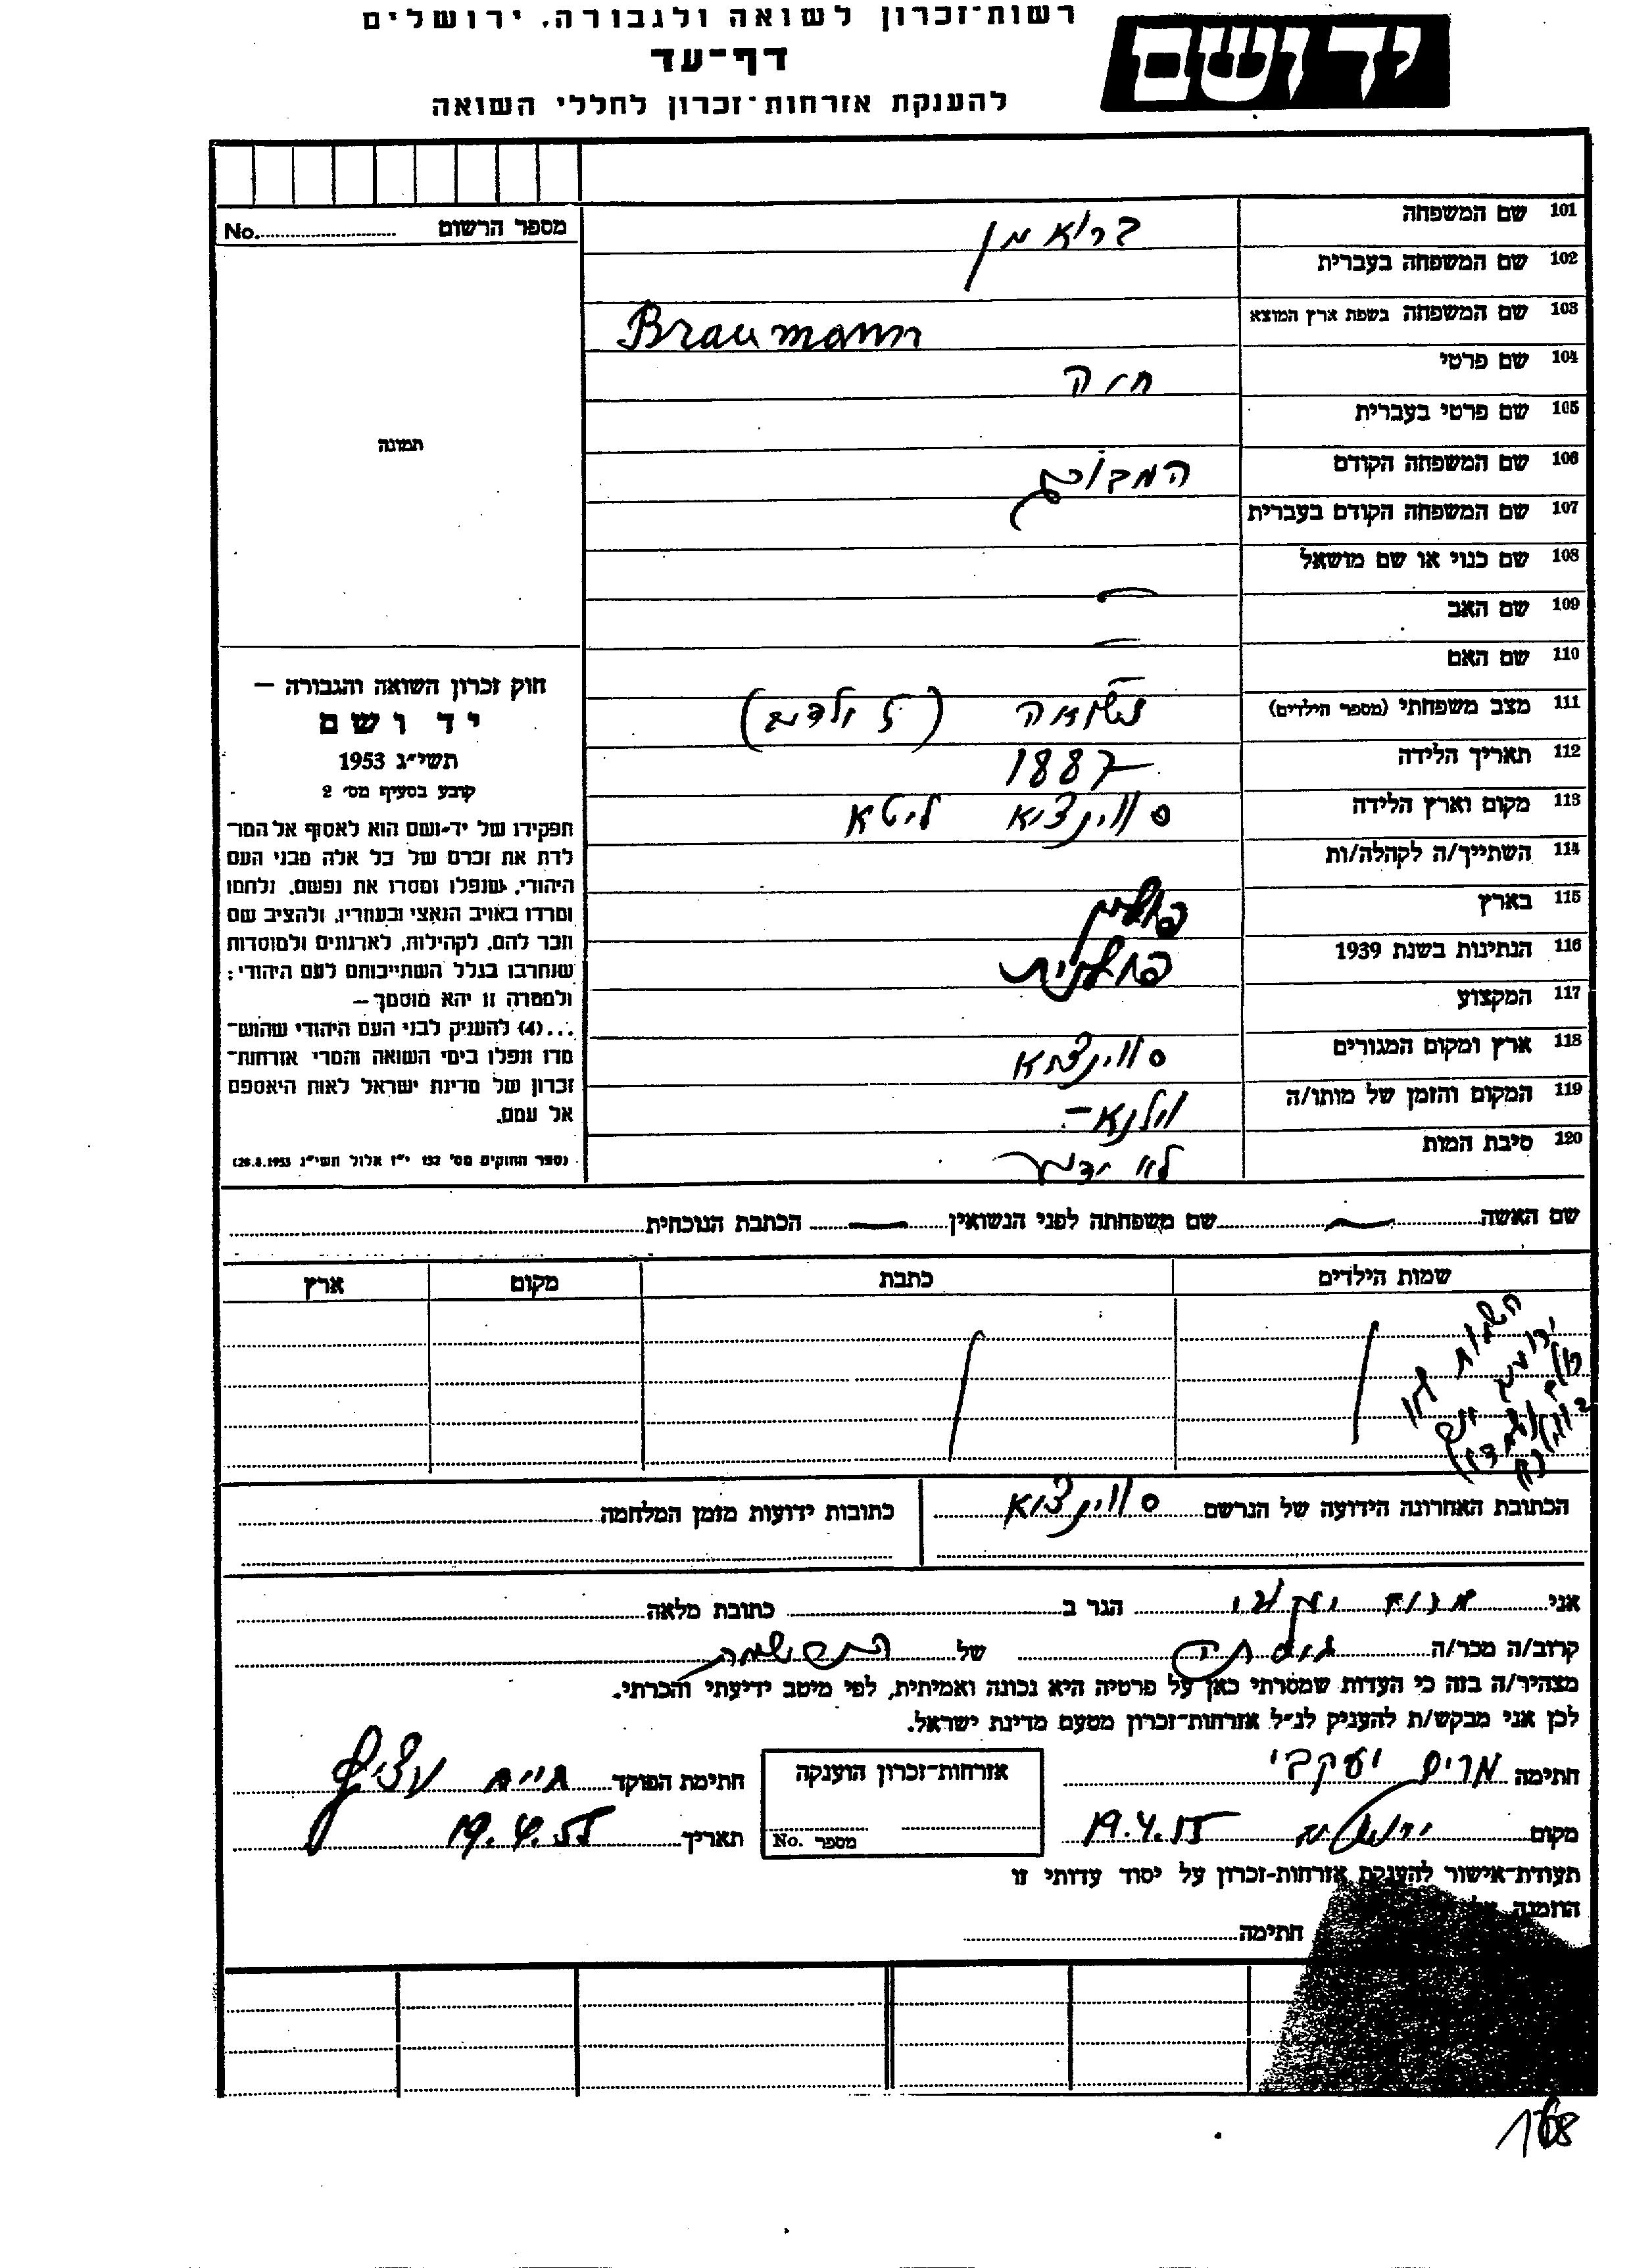 רשות־זכרון לשואה ולגבורה, ירושלים
דף־עד
להענקת אזרחות־זכרון לחללי השואה
יד ושם
מספר הרשום No.
101 שם המשפחה בראמן
102 שם המשפחה בעברית
103 שם המשפחה בשפת ארץ המוצא Braumann
104 שם פרטי חיה
105 שם פרטי בעברית
106 שם המשפחה הקודם
107 שם המשפחה הקודם בעברית
108 שם כנוי או שם מושאל
109 שם האב
110 שם האם —
111 מצב משפחתי (מספר הילדים) נשואה (2 ילדים)
112 תאריך הלידה 1887
113 מקום וארץ הלידה סווינציא ליטא
114 השתייך/ה לקהלה/ות
115 בארץ פולין
116 הנתינות בשנת 1939 פולנית
117 המקצוע
118 ארץ ומקום המגורים סווינציא
119 המקום והזמן של מותו/ה ווילנא –
120 סיבת המות לא ידוע
תמונה
חוק זכרון השואה והגבורה —
יד ושם
תשי״ג 1953
קובע בסעיף מס׳ 2
תפקידו של יד-ושם הוא לאסוף אל המו־
לדת את זכרם של כל אלה מבני העם
היהודי, שנפלו ומסרו את נפשם, נלחמו
ומרדו באויב הנאצי ובעוזריו, ולהציב שם
וזכר להם, לקהילות, לארגונים ולמוסדות
שנחרבו בגלל השתייכותם לעם היהודי;
ולמטרה זו יהא מוסמך—
...(4) להעניק לבני העם היהודי שהוש־
מדו ונפלו בימי השואה והמרי אזרחות־
זכרון של מדינת ישראל לאות היאספם
אל עמם.
(ספר החוקים מס׳ 132 י״ז אלול תשי״ג 28.8.1953)
שם האשה — שם משפחתה לפני הנשואין — הכתבת הנוכחית
שמות הילדים כתבת מקום ארץ
השמות
הכתובת האחרונה הידועה של הנרשם סווינציא כתובות ידועות מזמן המלחמה
אני הגר ב כתובת מלאה
קרוב/ה מכר/ה של
מצהיר/ה בזה כי העדות שמסרתי כאן על פרטיה היא נכונה ואמיתית, לפי מיטב ידיעתי והכרתי.
לכן אני מבקש/ת להעניק לנ״ל אזרחות־זכרון מטעם מדינת ישראל.
חתימה מרים יעקבי אזרחות־זכרון הוענקה חתימת הפוקד חיים
מקום ירושלים 19.4.55 מספר No. תאריך 19.4.55
תעודת־אישור להענקת אזרחות-זכרון על יסוד עדותי זו
הוזמנה
חתימה
168